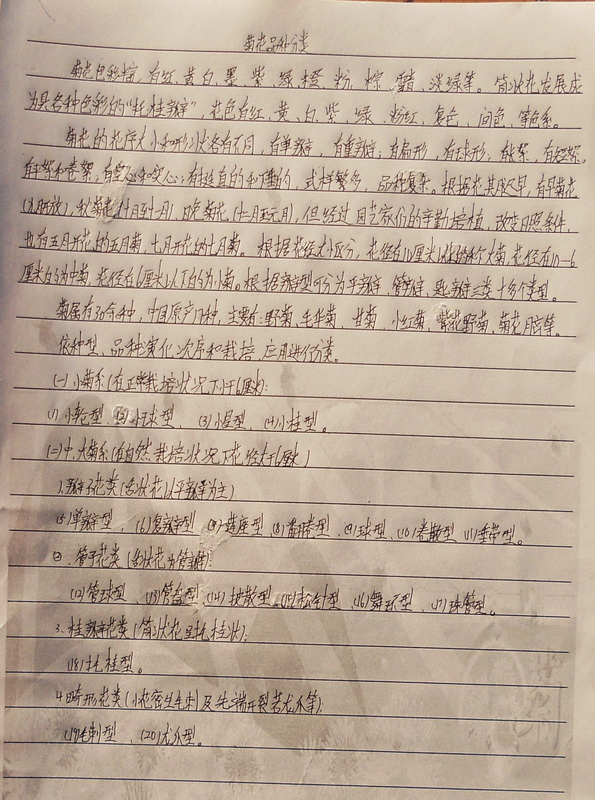 菊花品种分类
菊花色彩棕,有红、黄、白、墨、紫、绿、橙、粉、棕、雪青、淡绿等。筒状花发展成
为具各种色彩的“托桂瓣”,花色有红、黄、白、紫、绿、粉红、复色、间色、等色系。
菊花的花序大小和形状各有不同,有单瓣,有重瓣;有扁形,有球形;有长絮,有短絮,
有平絮和卷絮;有空心和实心;有挺直的和下垂的,式样繁多,品种复杂。根据花其用迟早,有早菊花
(九月开放),秋菊花(十月至十一月),晚菊花(十二月至元月),但经过园艺家们的辛勤培植,改变日照条件,
也有五月开花的五月菊,七月开花的七月菊。根据花径大小区分,花径在10厘米以上的称大菊,花径在10-6
厘米的为中菊,花径在6厘米以下的为小菊。根据瓣型可分为平瓣、管瓣、匙瓣三类十多个类型。
菊属有30余种,中国原产17种,主要有:野菊、毛华菊、甘菊、小红菊、紫花野菊、菊花脑等。
依种型、品种演化次序和栽培、应用进行分类。
(一)小菊系(在正常栽培状况下小于6厘米):
(1)小轮型、(2)小球型、(3)小星型、(4)小桂型。
(二)中、大菊系(在自然栽培状况下花径大于6厘米)
1.瓣子花类(舌状花以平瓣等为主)
(5)单瓣型、(6)复瓣型、(7)莲座型、(8)翻卷型、(9)球型、(10)卷散型、(11)垂带型。
2、管子花类(舌状花为管瓣):
(12)管球型、(13)管盘型、(14)披散型、(15)松针型、(16)舞环型、(17)珠管型。
3.桂瓣花类(筒状花呈托桂状):
(18)托桂型。
4.畸形花类(小花密生毛刺及先端开裂若龙爪等):
(19)毛刺型、(20)龙爪型。